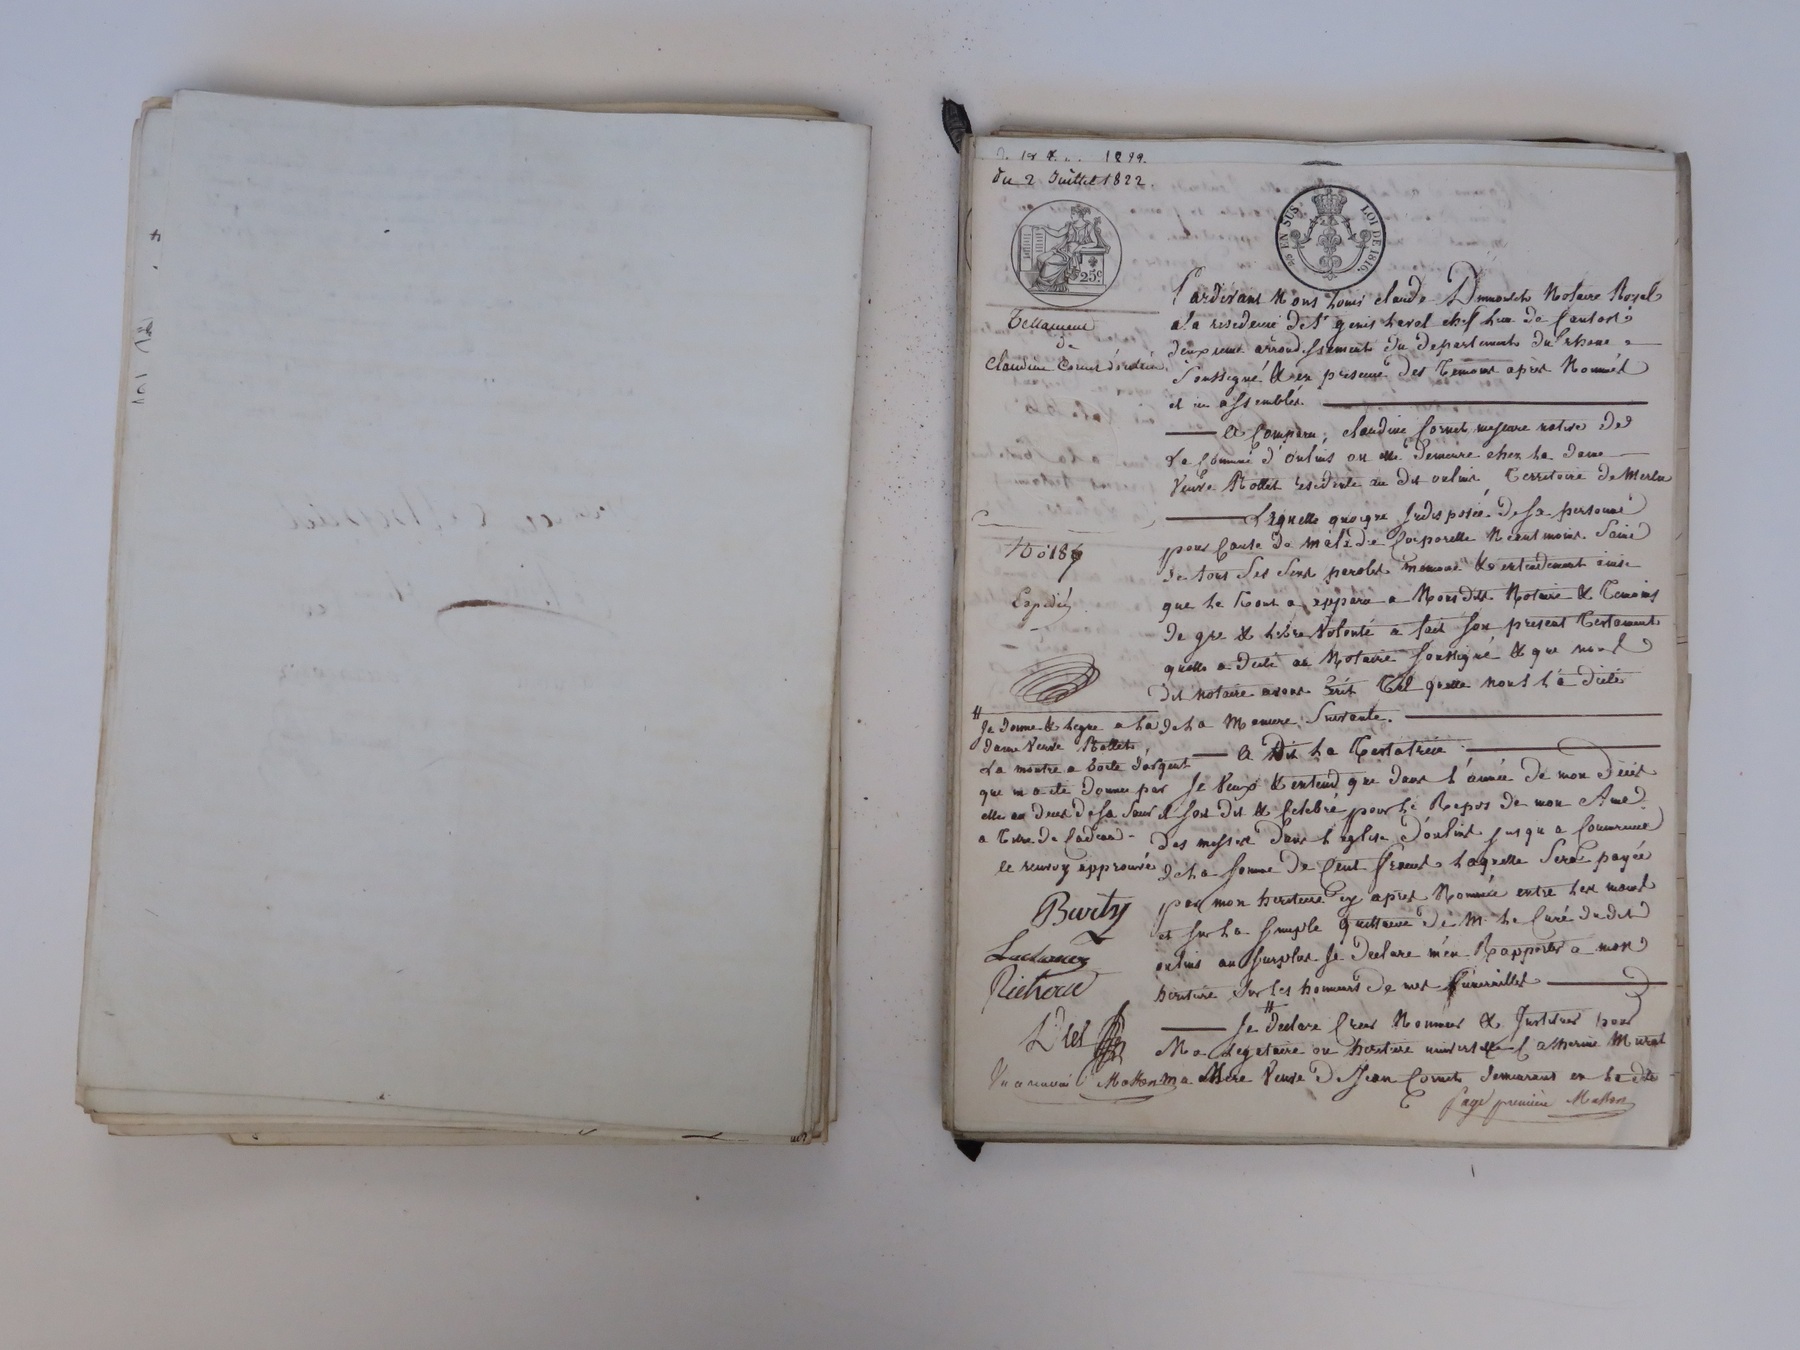 du 2 Juillet 1822.
25c.
25 EN SUS. LOI DE 1816.
Testament
de
Claudine Cornet
No 187
Expedié
Pardevant Nous Louis Claude Notaire Royal
a la residence de St genis Laval chef lieu de Canton
deuxieme arrondissement du departement du Rhone
Soussigné & en presence des Temoins après Nommés
et assemblés.
A Comparu, Claudine Cornet majeure native de
La Commune d'oulins ou elle demeure chez la dame
Veuve Rollet residente au dit oulins Territoire de Merlu
Laquelle quoique Indisposée de sa personne
pour Cause de maladie Corporelle Neantmoins Saine
de tous ses Sens paroles memoire & entendement ainsi
que le tout a apparu a Nousdit Notaire & Temoins
de gre & libre Volonté a fait son present Testament
quelle a dicté au Notaire soussigné & que nous
dit notaire avons Ecrit Tel quelle nous l'a dicté
de la Maniere Suivante.
A Dit la Testatrice
Je Veux & entend que dans l'année de mon Décès
il soit dit & Celebré pour le Repos de mon Ame
des messes dans l'eglise d'oulins jusqu'a Concurrence
de la somme de Cent francs laquelle sera payée
par mon heritiere cy après Nommée entre les mains
et sur la simple quittance de Mr le Curé dudit
oulins au surplus Je declare m'en Rapporter a mon
heritiere sur les honneurs de mes funerailles
Je # declare Créer Nommer & Instituer pour
Ma Legataire ou heritiere universelle Catherine Murat
ma Mere Veuve de Jean Cornet demeurant en la dite
page première Matton
# Je donne & legue a la
dame Veuve Rollet
La montre a boete d'argent
que m'a été donnée par
elle au deces de sa soeur
a Titre de Cadeau
le renvoy approuvé
Burty
Richoud
Vu a renvoi Matton